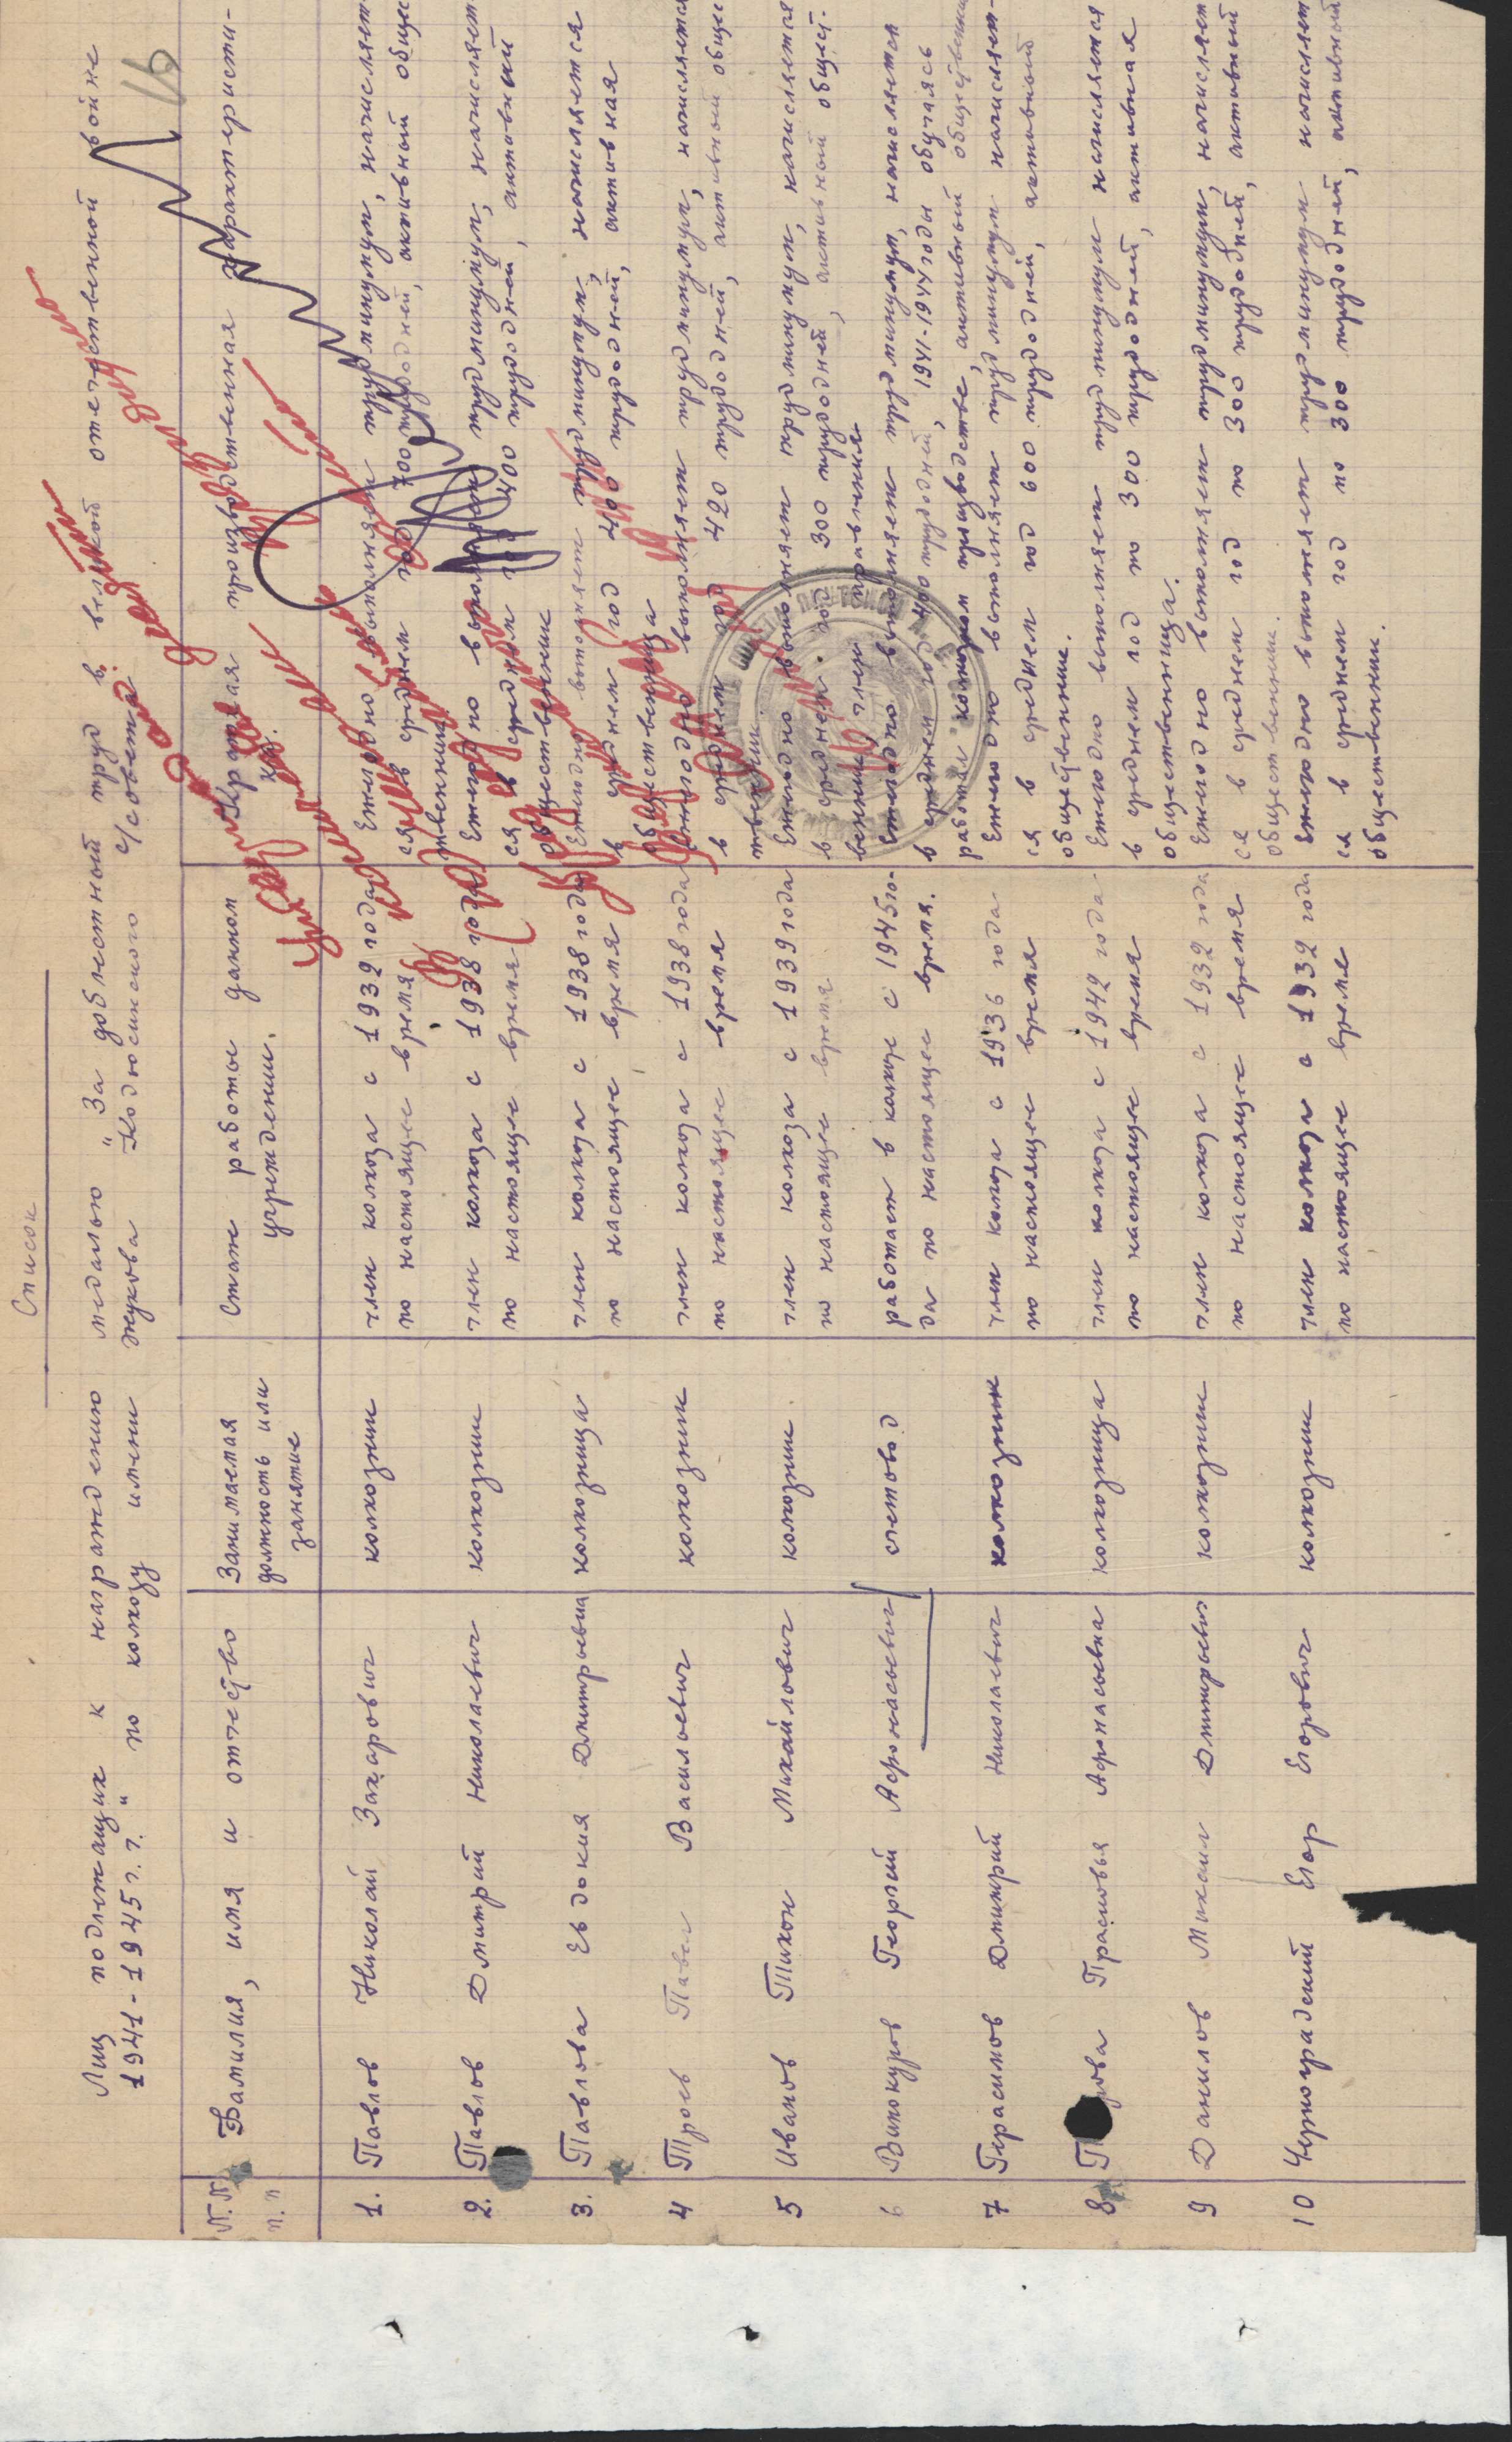 Список
Лиц подлежащих к награждению медалью "За доблестный труд в великой отечественной войне
1941-1945 г.г." по колхозу имени Жукова Кодюсинского с/совета
16
N.N п.п
Фамилия, имя и отчество
Занимаемая должность или занятие
Стаж работы данном учреждении.
Краткая производственная характеристи-
ка.
1. Павлов Николай Захарович
колхозник
член колхоза с 1932 года
по настоящее время
Ежегодно выполняет трудминимум, начисляет-
ся в среднем год 700 трудодней, активный общес
твенник
2. Павлов Дмитрий Николаевич
колхозник
член колхоза с 1938 года
по настоящее время
Ежегодно выполняет трудминимум, начисляет
ся в среднем год 400 трудодней, активный
общественник
3. Павлова Евдокия Дмитриевна
колхозница
член колхоза с 1938 года
по настоящее время
Ежегодно выполняет трудминимум, начисляется
в среднем год 400 трудодней, активная
общественница
4 Троев Павел Васильевич
колхозник
член колхоза с 1938 года
по настоящее время
Ежегодно выполняет трудминимум, начисляется
в среднем год 420 трудодней, активный общес
твенник.
5 Иванов Тихон Михайлович
колхозник
член колхоза с 1939 года
по настоящее время
Ежегодно выполняет трудминимум, начисляется
в среднем год 300 трудодней, активный общест-
венник, член правления
6 Винокуров Георгий Афонасьевич
счетовод
работает в колхозе с 1945 го-
да по настоящее время.
Ежегодно выполняет трудминимум, начисляется
в среднем год 400 трудодней, 1941-1944 годы обучаясь
работал колхозном производстве, активный общественник
7 Герасимов Дмитрий Николаевич
колхозник
член колхоза с 1936 года
по настоящее время
Ежегодно выполняет трудминимум начисляет-
ся в среднем год 600 трудодней, активный
общественник.
8 П рова Прасковья Афонасьевна
колхозница
член колхоза с 1942 года
по настоящее время
Ежегодно выполняет трудминимум начисляется
в среднем год по 300 трудодней, активная
общественница.
9 Данилов Михаил Дмитриевич
колхозник
член колхоза с 1932 года
по настоящее время
Ежегодно выполняет трудминимум, начисляет
ся в среднем год по 300 трудодней, активный
общественник.
10 Черноградский Егор Егорович
колхозник
член колхоза с 1932 года
по настоящее время
Ежегодно выполняет трудминимум начисляет
ся в среднем год по 300 трудодней, активный
общественник.